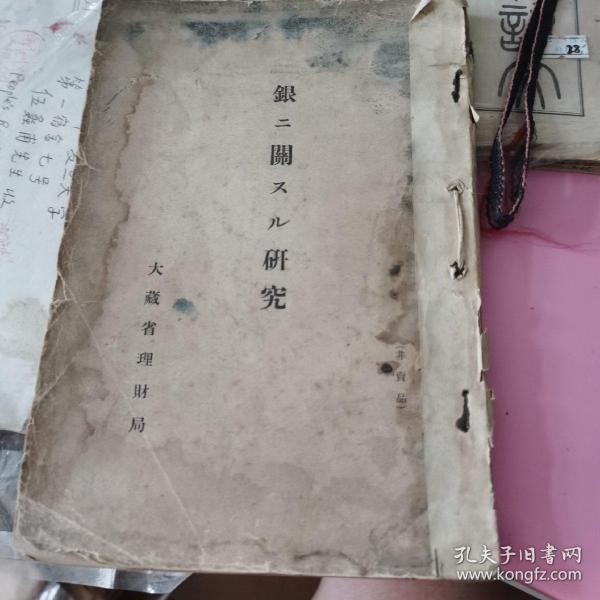 銀ニ關スル研究
大藏省理財局
(非賣品)
第一宿舍七号
伍蠡甫先生收
People's
28
孔夫子旧书网
www.kongfz.com